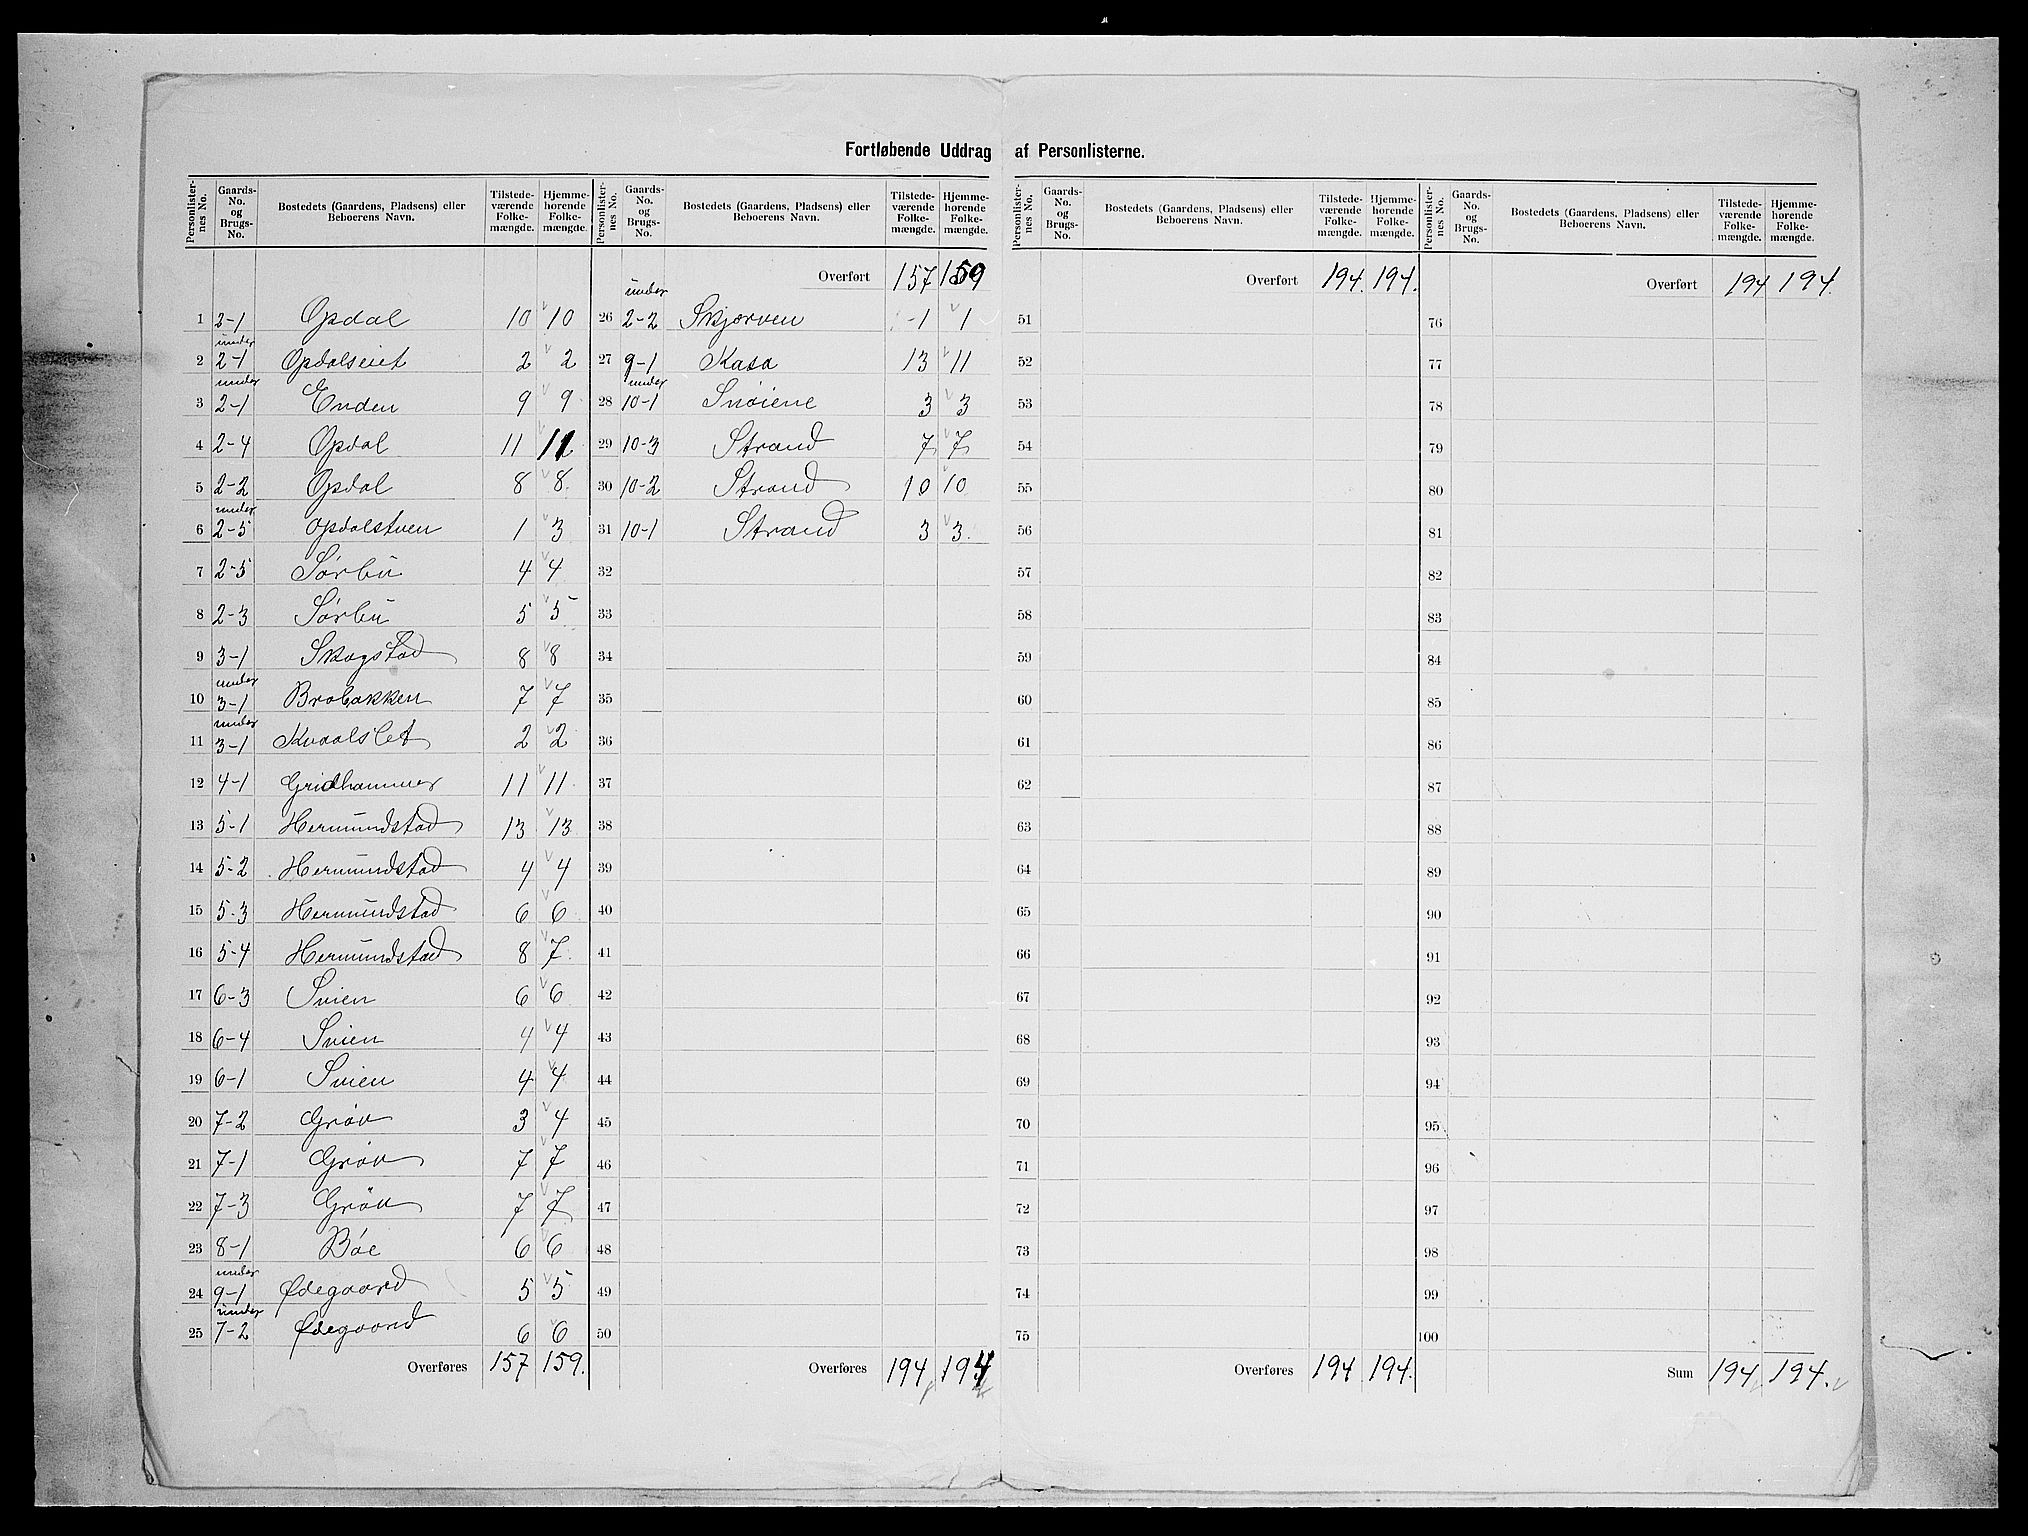 Fortløbende Uddrag af Personlisterne.
Personlister-nes No. | Gaards-No. og Brugs-No. | Bostedets (Gaardens, Pladsens) eller Beboerens Navn. | Tilstede-værende Folke-mængde. | Hjemme-hørende Folke-mængde.
1 2-1 Opdal 10 10
2 under 2-1 Opdalseiet 2 2
3 under 2-1 Enden 9 9
4 2-4 Opdal 11 11
5 2-2 Opdal 8 8
6 under 2-5 Opdalstuen 1 3
7 2-5 Sørbu 4 4
8 2-3 Sørbu 5 5
9 3-1 Skogstad 8 8
10 under 3-1 Brobakken 7 7
11 under 3-1 Kvaalslet 2 2
12 4-1 Gridhammer 11 11
13 5-1 Hermundstad 13 13
14 5-2 Hermundstad 4 4
15 5-3 Hermundstad 6 6
16 5-4 Hermundstad 8 7
17 6-3 Svien 6 6
18 6-4 Svien 4 4
19 6-1 Svien 4 4
20 7-2 Grøv 3 4
21 7-1 Grøv 7 7
22 7-3 Grøv 7 7
23 8-1 Bøe 6 6
24 under 9-1 Ødegaard 5 5
25 under 7-2 Ødegaard 6 6
Overføres 157 159.
Personlister-nes No. | Gaards-No. og Brugs-No. | Bostedets (Gaardens, Pladsens) eller Beboerens Navn. | Tilstede-værende Folke-mængde. | Hjemme-hørende Folke-mængde.
Overført 157 159
26 under 2-2 Skjørven 1 1
27 9-1 Kasa 13 11
28 under 10-1 Snøiene 3 3
29 10-3 Strand 7 7
30 10-2 Strand 10 10
31 10-1 Strand 3 3
32
33
34
35
36
37
38
39
40
41
42
43
44
45
46
47
48
49
50
Overføres 194 194
Personlister-nes No. | Gaards-No. og Brugs-No. | Bostedets (Gaardens, Pladsens) eller Beboerens Navn. | Tilstede-værende Folke-mængde. | Hjemme-hørende Folke-mængde.
Overført 194. 194.
51
52
53
54
55
56
57
58
59
60
61
62
63
64
65
66
67
68
69
70
71
72
73
74
75
Overføres 194 194.
Personlister-nes No. | Gaards-No. og Brugs-No. | Bostedets (Gaardens, Pladsens) eller Beboerens Navn. | Tilstede-værende Folke-mængde. | Hjemme-hørende Folke-mængde.
Overført 194 194.
76
77
78
79
80
81
82
83
84
85
86
87
88
89
90
91
92
93
94
95
96
97
98
99
100
Sum 194 194.